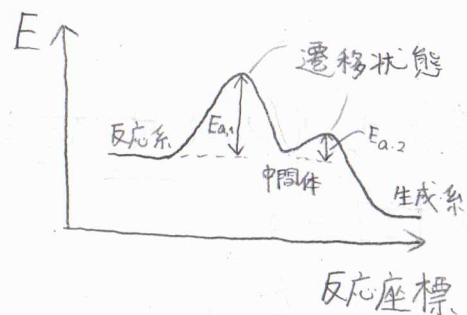 E
遷移状態
反応系
Ea,1
Ea.2
中間体
生成系
反応座標